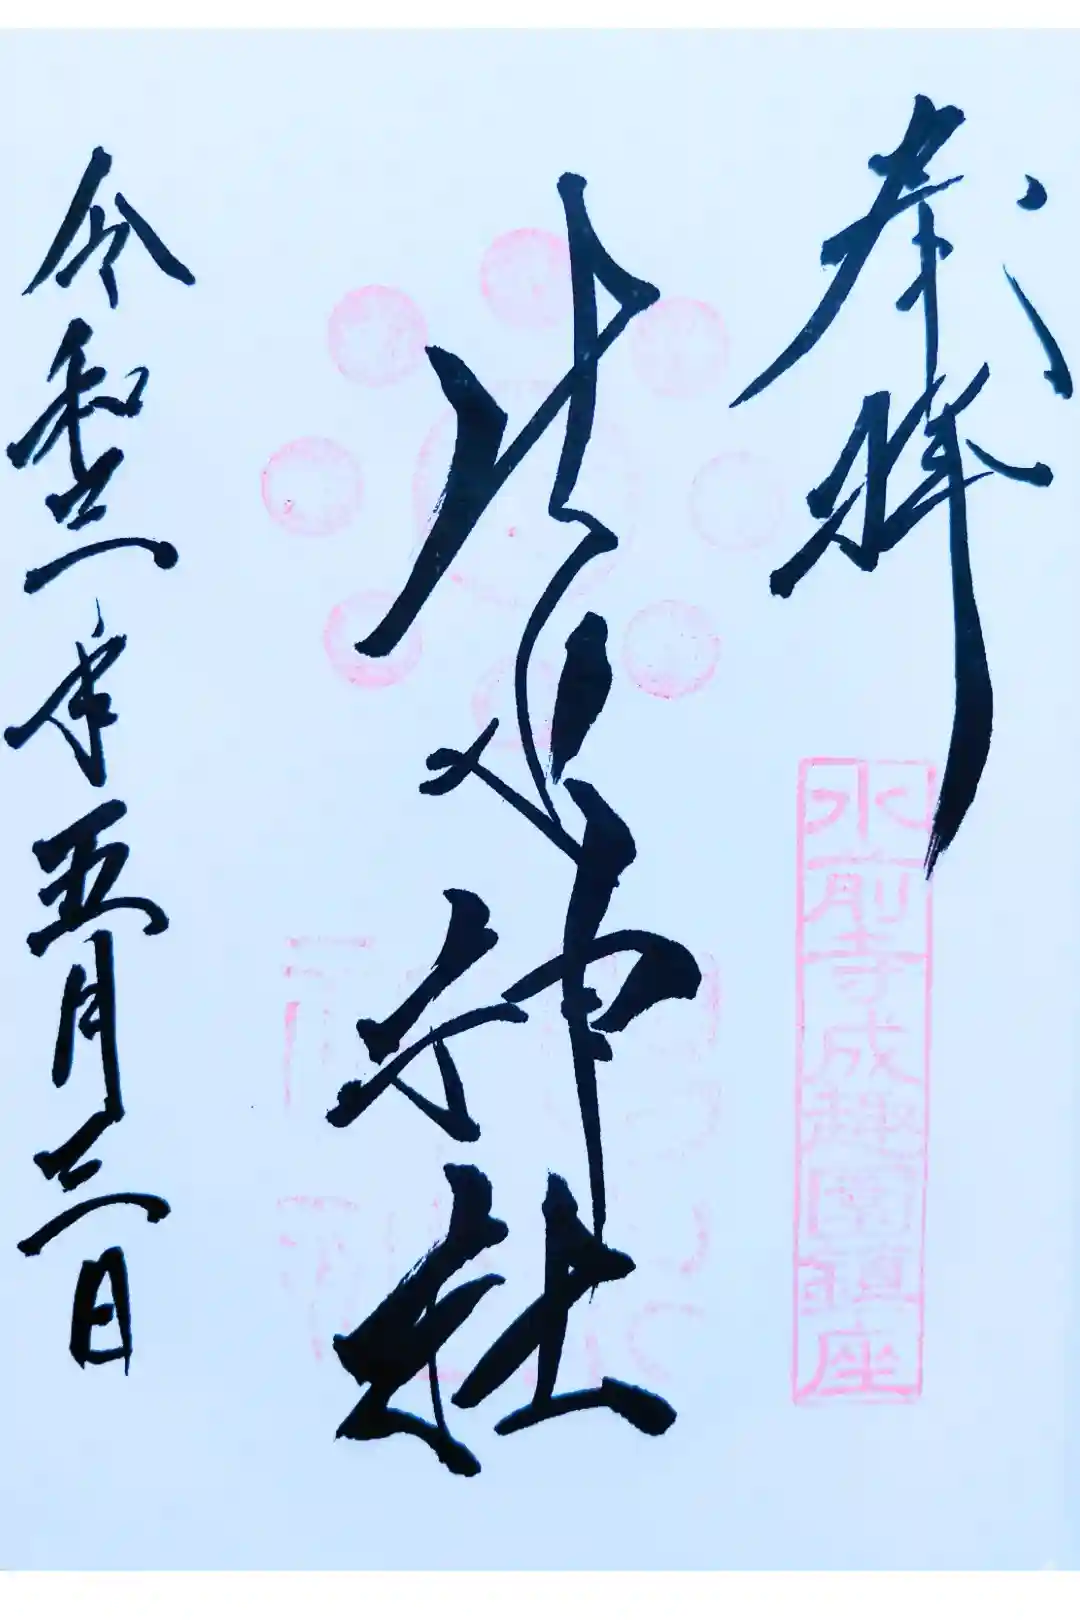 奉拝
水前寺成趣園鎮座
出水神社
令和三年五月三日